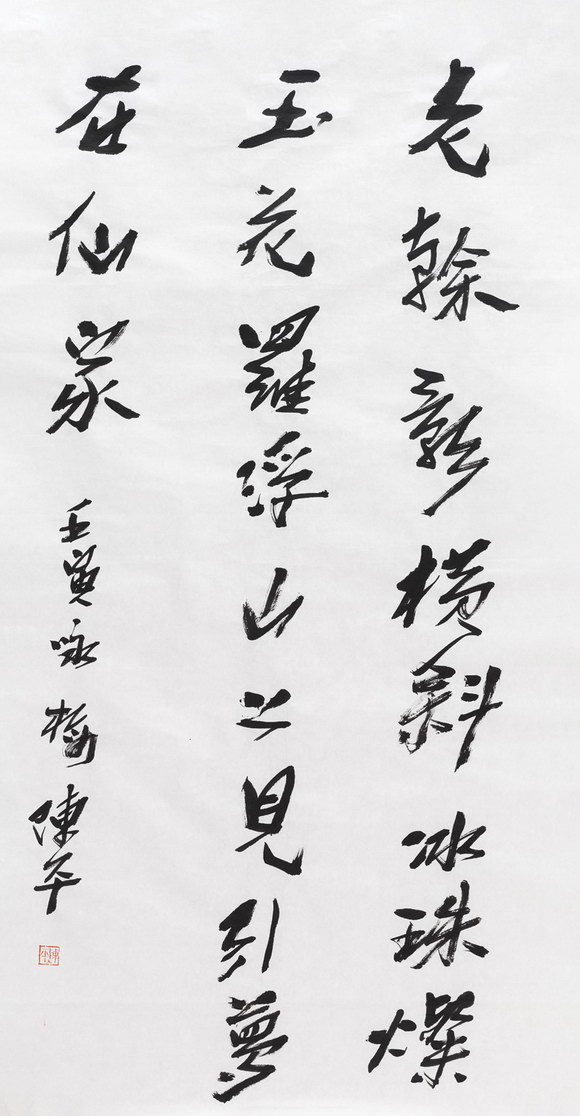 老榦龍橫斜冰珠燦
玉花羅浮山上見引夢
在仙家
壬寅咏梅陳平